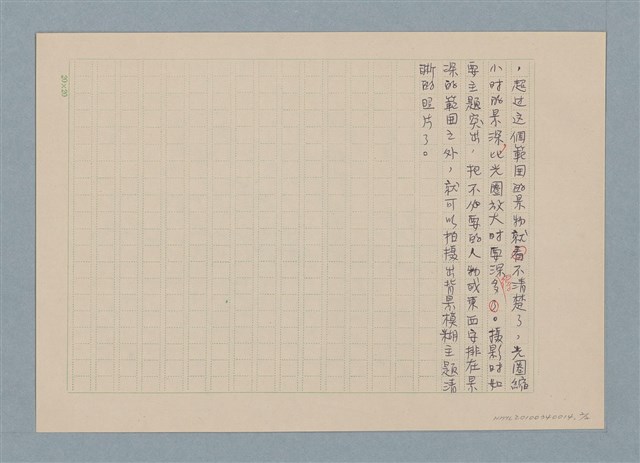 ，超过这個範围的景物就看不清楚了，光圈縮
小时的景深比光圈放大时要深多。攝影时如
要主題突出，把不必要的人物或東西安排在景
深的範围之外，就可以拍攝出背景模糊主題清
晰的照片了。
20×20